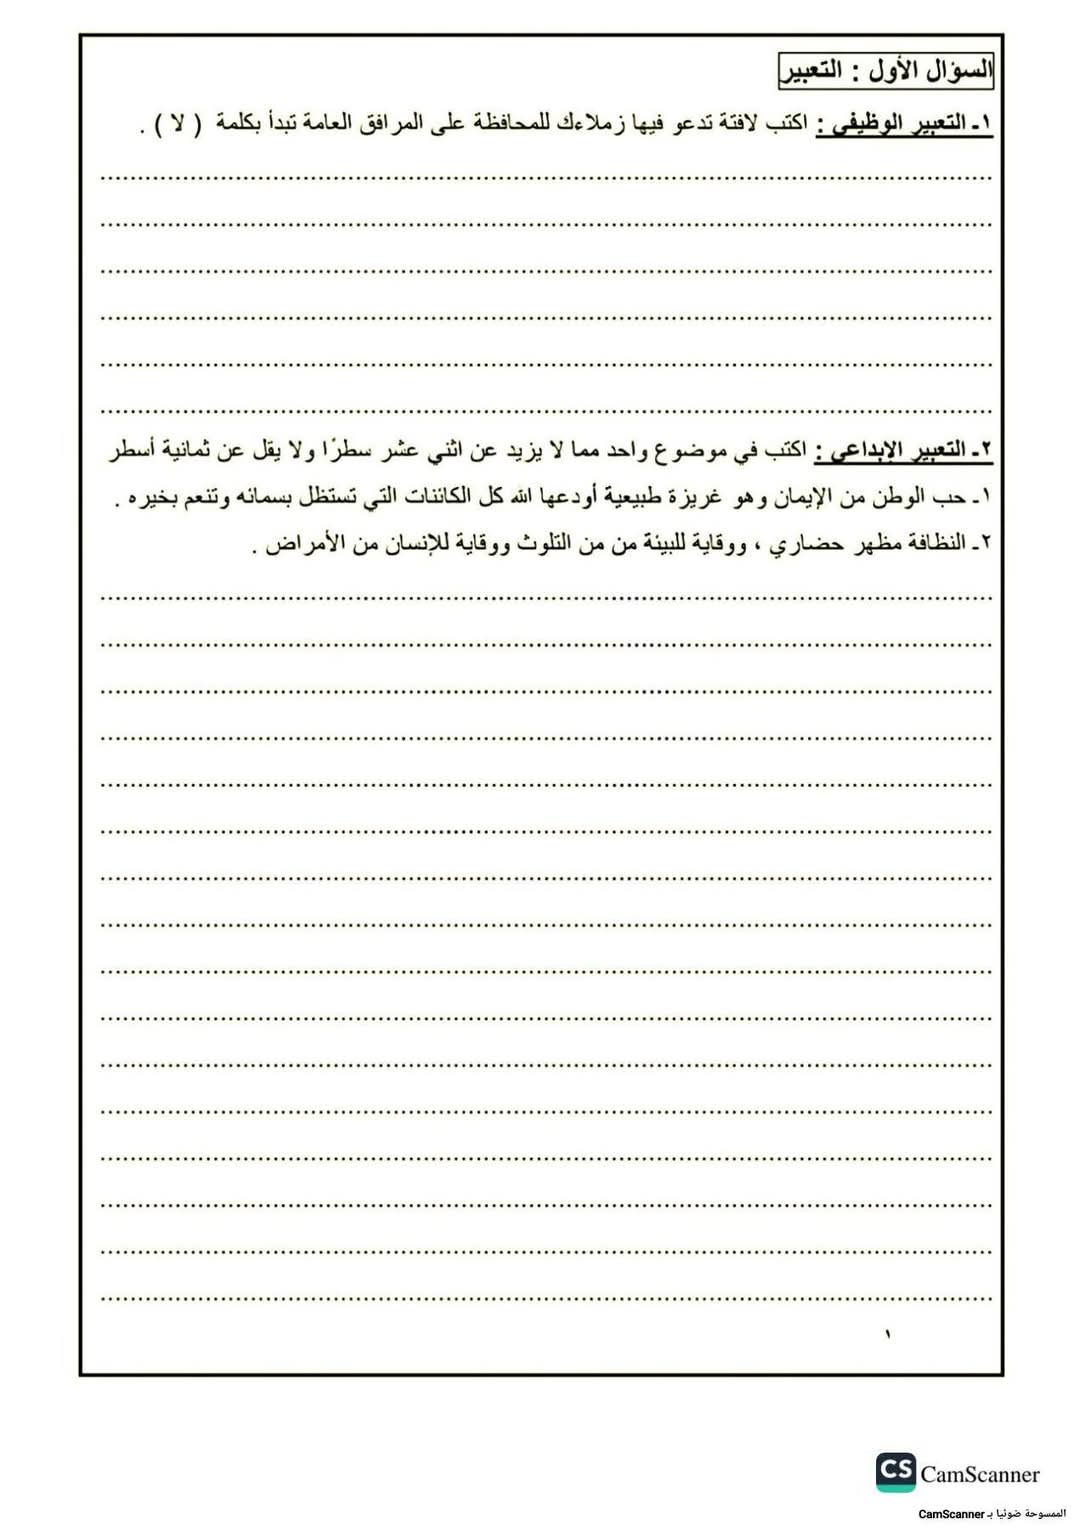 السؤال الأول : التعبير
١ـ التعبير الوظيفي : اكتب لافتة تدعو فيها زملاءك للمحافظة على المرافق العامة تبدأ بكلمة ( لا ) .
٢ـ التعبير الإبداعي : اكتب في موضوع واحد مما لا يزيد عن اثني عشر سطرًا ولا يقل عن ثمانية أسطر
١ـ حب الوطن من الإيمان وهو غريزة طبيعية أودعها الله كل الكائنات التي تستظل بسمائه وتنعم بخيره .
٢ـ النظافة مظهر حضاري ، ووقاية للبيئة من من التلوث ووقاية للإنسان من الأمراض .
١
CS CamScanner
الممسوحة ضوئيا بـ CamScanner